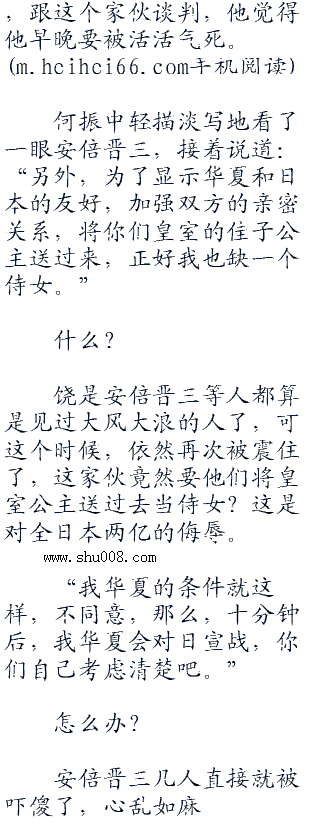 ，跟这个家伙谈判，他觉得
他早晚要被活活气死。
(m.hcihci66.com手机阅读)
何振中轻描淡写地看了
一眼安倍晋三，接着说道：
“另外，为了显示华夏和日
本的友好，加强双方的亲密
关系，将你们皇室的佳子公
主送过来，正好我也缺一个
侍女。”
什么？
饶是安倍晋三等人都算
是见过大风大浪的人了，可
这个时候，依然再次被震住
了，这家伙竟然要他们将皇
室公主送过去当侍女？这是
对全日本两亿的侮辱。
www.shu008.com
“我华夏的条件就这
样，不同意，那么，十分钟
后，我华夏会对日宣战，你
们自己考虑清楚吧。”
怎么办？
安倍晋三几人直接就被
吓傻了，心乱如麻